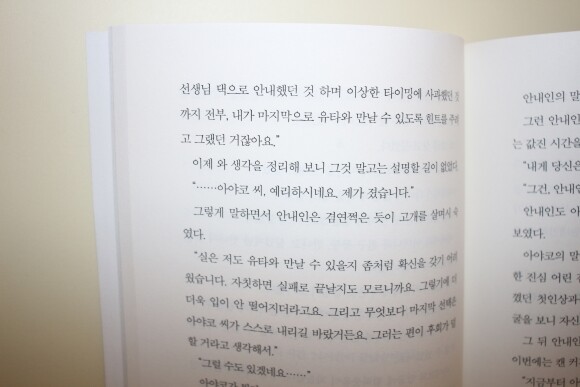 선생님 댁으로 안내했던 것 하며 이상한 타이밍에 사과했던 것
까지 전부, 내가 마지막으로 유타와 만날 수 있도록 힌트를 주려
고 그랬던 거잖아요.”
이제 와 생각을 정리해 보니 그것 말고는 설명할 길이 없었다.
“……아야코 씨, 예리하시네요. 제가 졌습니다.”
그렇게 말하면서 안내인은 겸연쩍은 듯이 고개를 살며시 숙
였다.
“실은 저도 유타와 만날 수 있을지 좀처럼 확신을 갖기 어려
웠습니다. 자칫하면 실패로 끝날지도 모르니까요. 그렇기에 더
더욱 입이 안 떨어지더라고요. 그리고 무엇보다 마지막 선택은
아야코 씨가 스스로 내리길 바랐거든요. 그러는 편이 후회가 덜
할 거라고 생각해서.”
“그럴 수도 있겠네요……”
아야코가
안내인의 말
그런 안내인
는 값진 시간을
“내게 당신은
“그건, 안내인
안내인도 아
보였다.
아야코의 말
한 진심 어린
꼈던 첫인상과
굴을 보니 자신
그 뒤 안내인
이번에는 캔 커
“지금부터